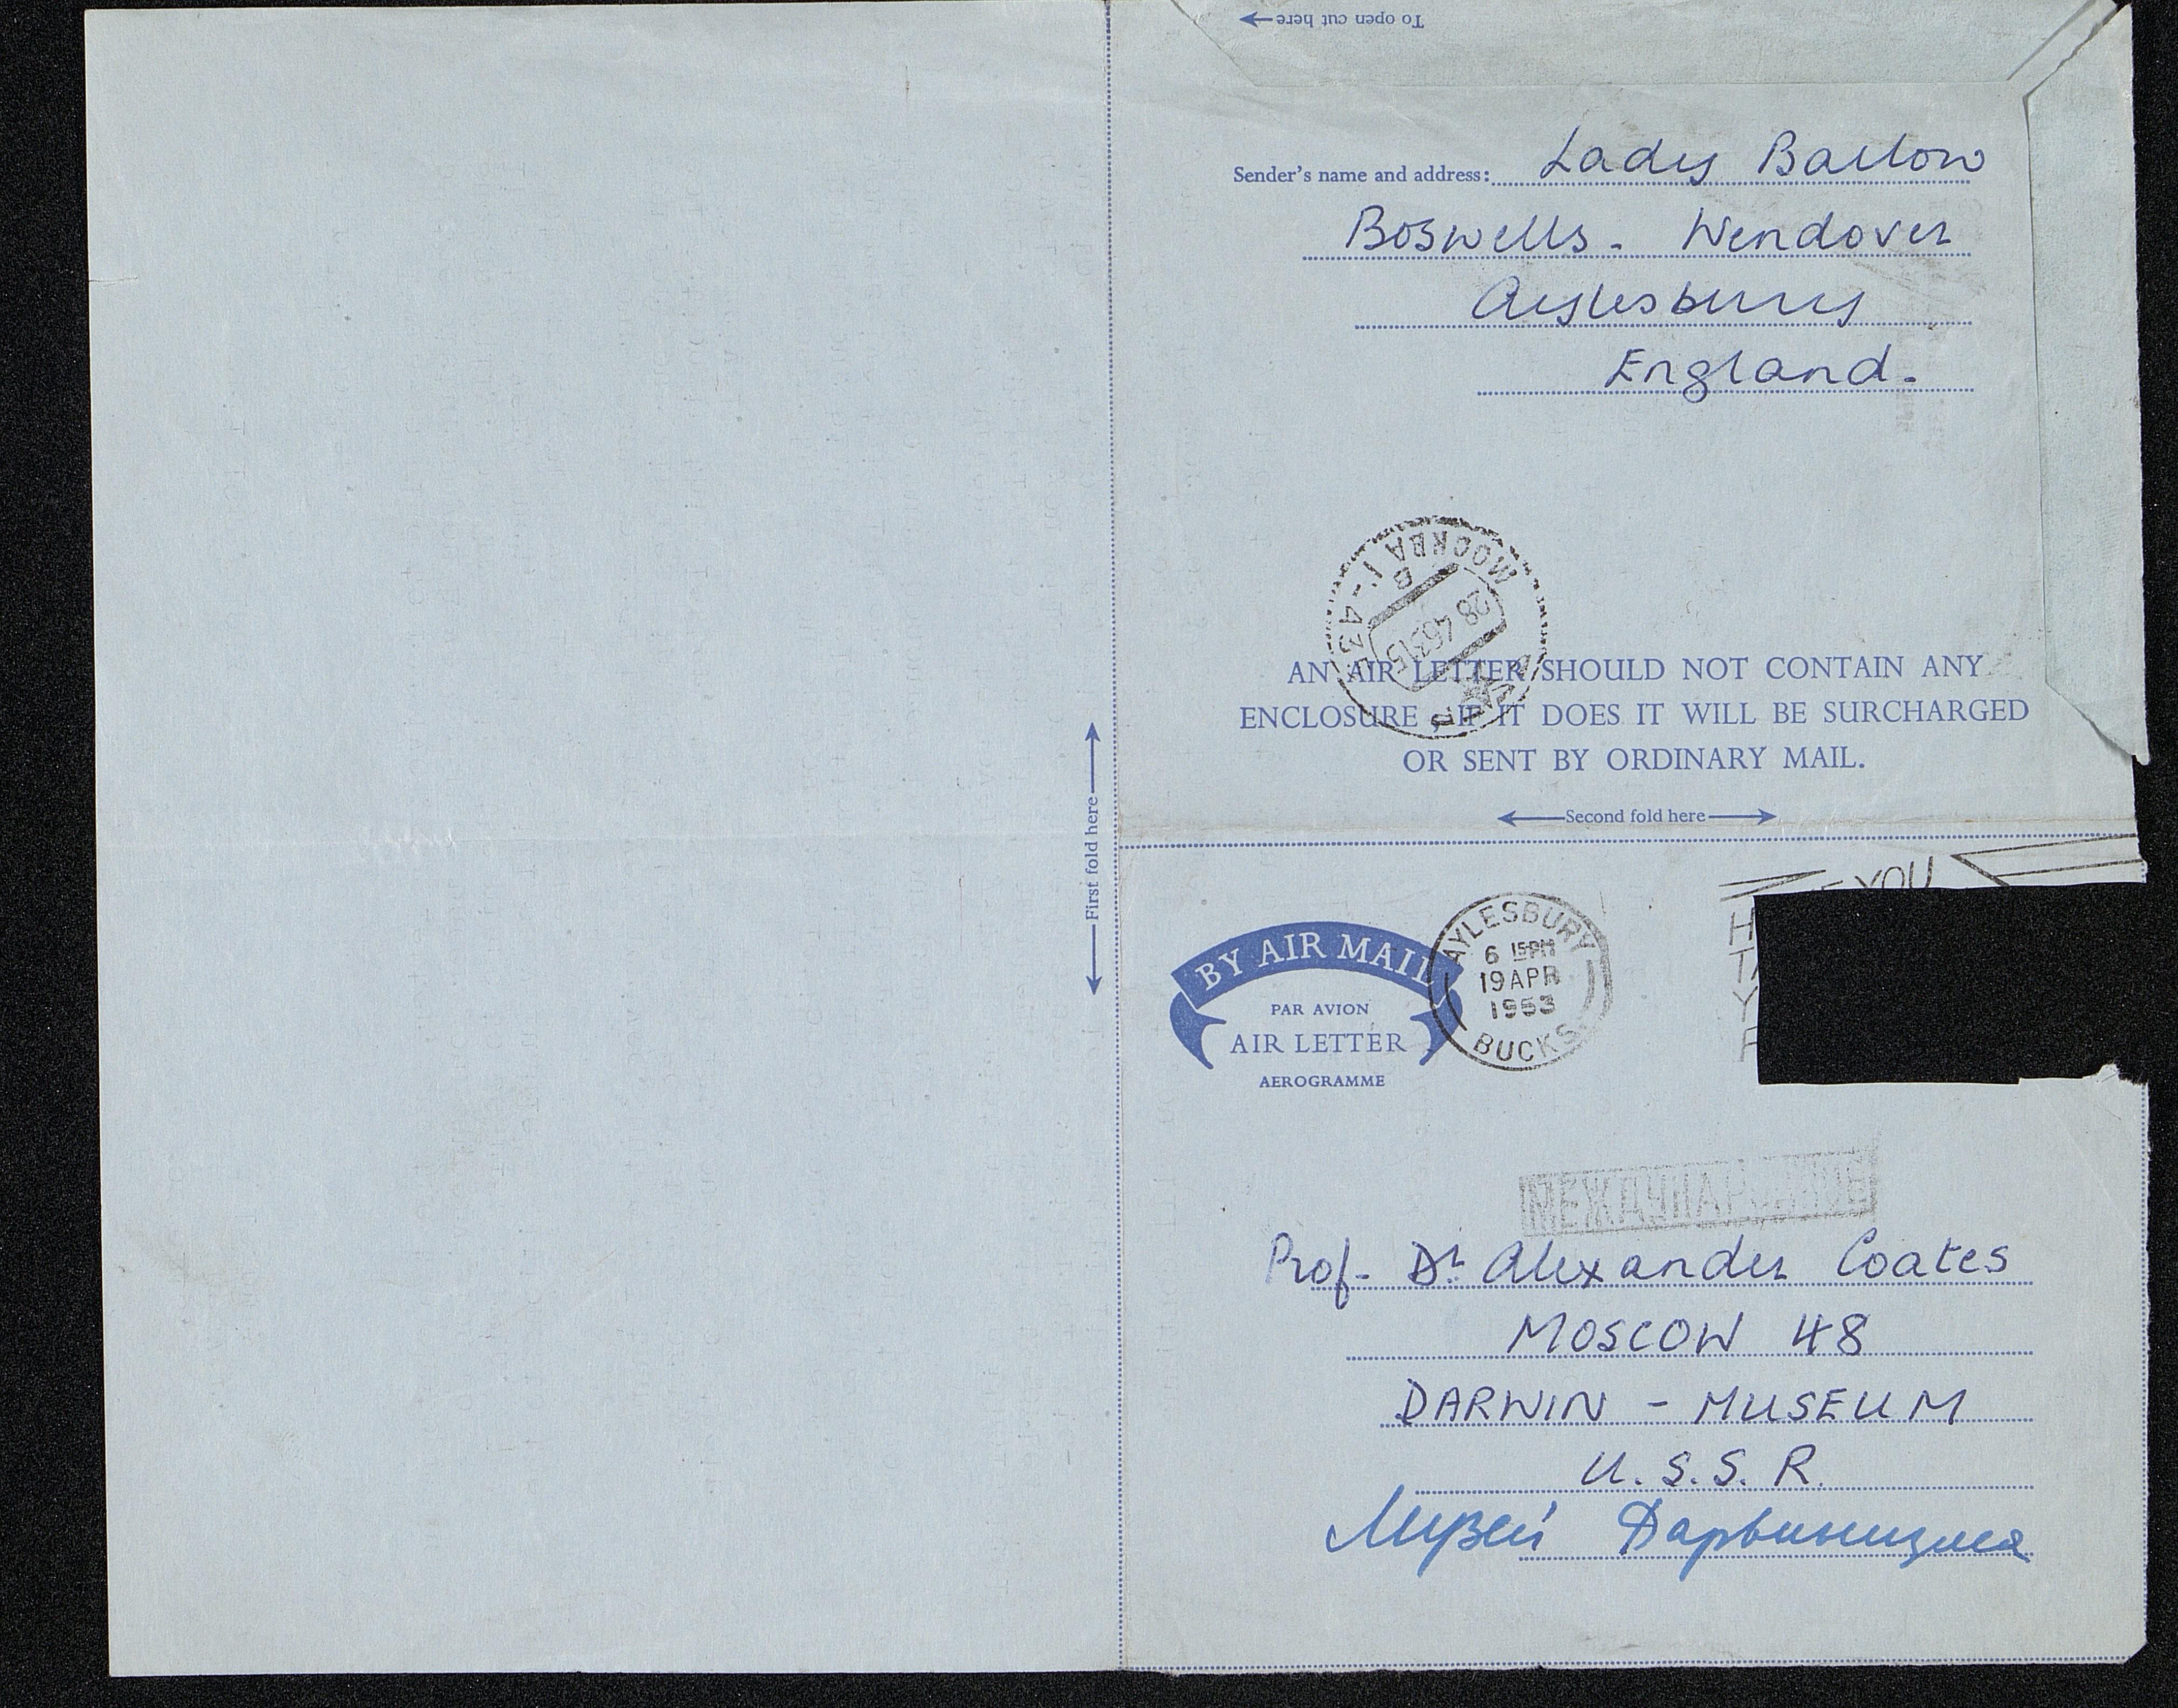 To open cut here
Sender's name and address: Lady Barlow
Boswells. Wendover
Aylesbury
England.
МОСКВА
28 4 53 15
AN AIR LETTER SHOULD NOT CONTAIN ANY
ENCLOSURE; IF IT DOES IT WILL BE SURCHARGED
OR SENT BY ORDINARY MAIL.
Second fold here
First fold here
YOU
BY AIR MAIL
PAR AVION
AIR LETTER
AEROGRAMME
AYLESBURY
6 15PM
19 APR
1953
BUCKS
МЕЖДУНАРОДНОЕ
Prof. Dr. Alexander Coates
MOSCOW 48
DARWIN - MUSEUM
U.S.S.R.
Музей Дарвинизма